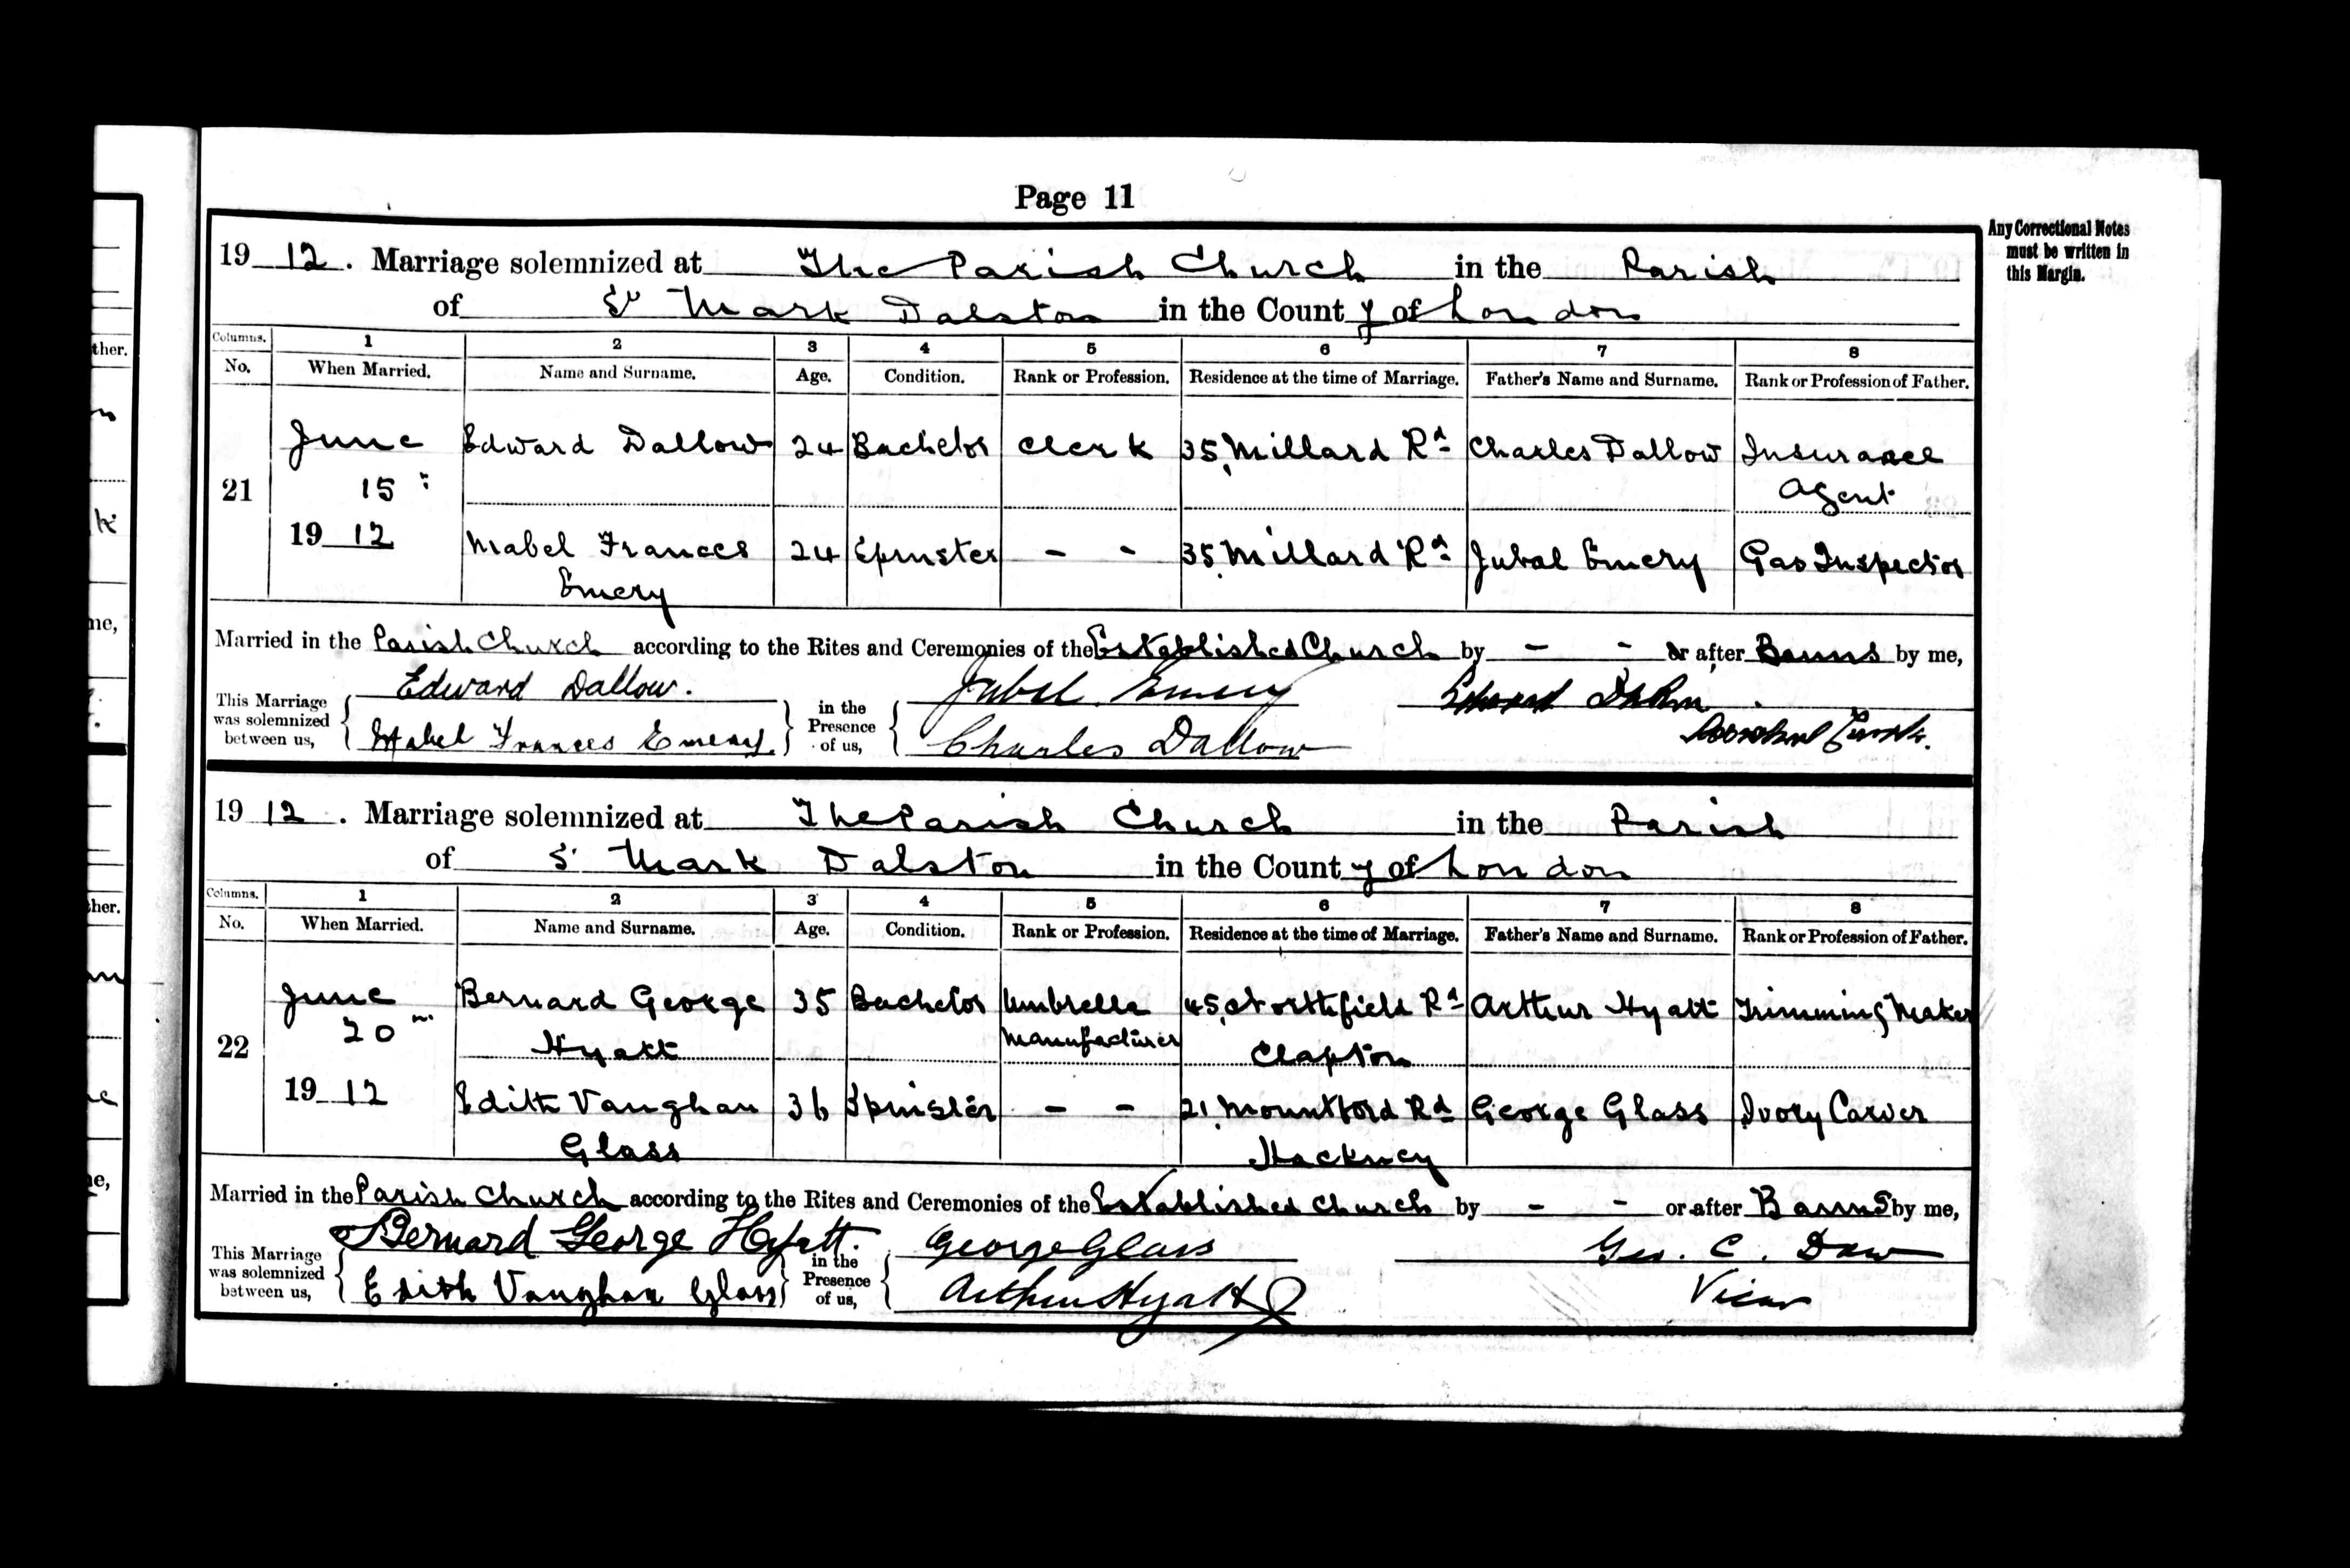 Page 11
Any Correctional Notes
must be written in
this Margin.
19 12. Marriage solemnized at The Parish Church in the Parish
of St Mark Dalston in the County of London
Columns. 1 2 3 4 5 6 7 8
No. When Married. Name and Surname. Age. Condition. Rank or Profession. Residence at the time of Marriage. Father's Name and Surname. Rank or Profession of Father.
June Edward Dallow 24 Bachelor Clerk 35, Millard Rd Charles Dallow Insurance
21 15 Agent
19 12 Mabel Frances 24 Spinster - - 35, Millard Rd Jubal Emery Gas Inspector
Emery
Married in the Parish Church according to the Rites and Ceremonies of the Established Church by - - or after Banns by me,
This Marriage was solemnized between us, Edward Dallow. in the Presence of us, Jubal Emery
Mabel Frances Emery Charles Dallow
19 12. Marriage solemnized at The Parish Church in the Parish
of St Mark Dalston in the County of London
Columns. 1 2 3 4 5 6 7 8
No. When Married. Name and Surname. Age. Condition. Rank or Profession. Residence at the time of Marriage. Father's Name and Surname. Rank or Profession of Father.
June Bernard George 35 Bachelor Umbrella 45, Northfield Rd Arthur Hyatt Trimming Maker
22 20 Hyatt Manufacturer Clapton
19 12 Edith Vaughan 36 Spinster - - 21, Mountford Rd George Glass Ivory Carver
Glass Hackney
Married in the Parish Church according to the Rites and Ceremonies of the Established Church by - - or after Banns by me,
This Marriage was solemnized between us, Bernard George Hyatt. in the Presence of us, George Glass Geo. C. Daw
Edith Vaughan Glass Arthur Hyatt Vicar